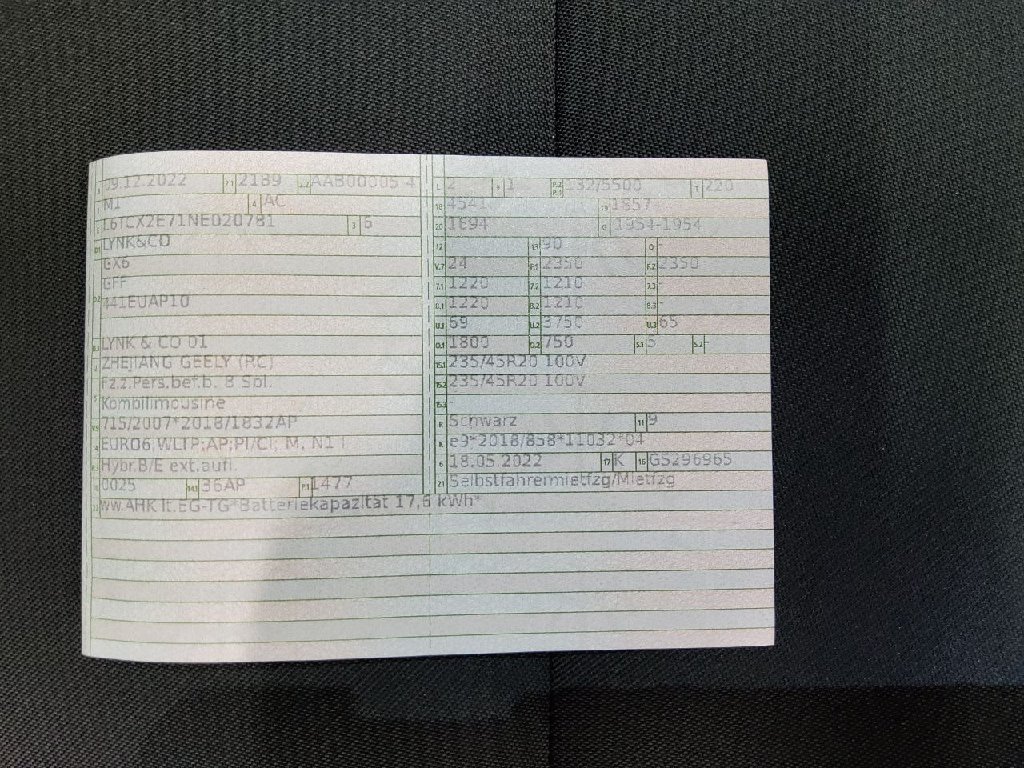 09.12.2022 2.1 2189 2.2 AAB00005 4
M1 4 AC
L6TCX2E71NE020781 3 6
LYNK&CO
CX6
GFF
441EUAP10
LYNK & CO 01
ZHEJIANG GEELY (RC)
Fz.z.Pers.bef.b. 8 Spl.
Kombilimousine
715/2007*2018/1832AP
EURO6,WLTP;AP;PI/CI; M, N1 I
Hybr.B/E ext.aufl.
0025 14.1 36AP P.1 1477
ww.AHK lt.EG-TG*Batteriekapazität 17,6 kWh*
L 2 9 1 P.2 P.4 132/5500 T 220
18 4541 19 1857
20 1694 G 1954-1954
12 - 13 90 Q -
V.7 24 F.1 2350 F.2 2350
7.1 1220 7.2 1210 7.3 -
8.1 1220 8.2 1210 8.3 -
U.1 69 U.2 3750 U.3 65
O.1 1800 O.2 750 S.1 5 S.2 -
15.1 235/45R20 100V
15.2 235/45R20 100V
15.3 -
R Schwarz 11 9
K e9*2018/858*11032*04
6 18.05.2022 17 K 16 GS296965
21 Selbstfahrermietfzg/Mietfzg